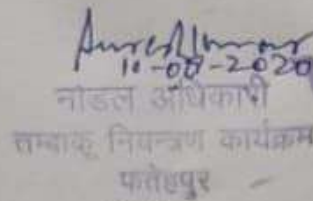 10-08-2020
नोडल अधिकारी
तम्बाकू नियन्त्रण कार्यक्रम
फतेहपुर